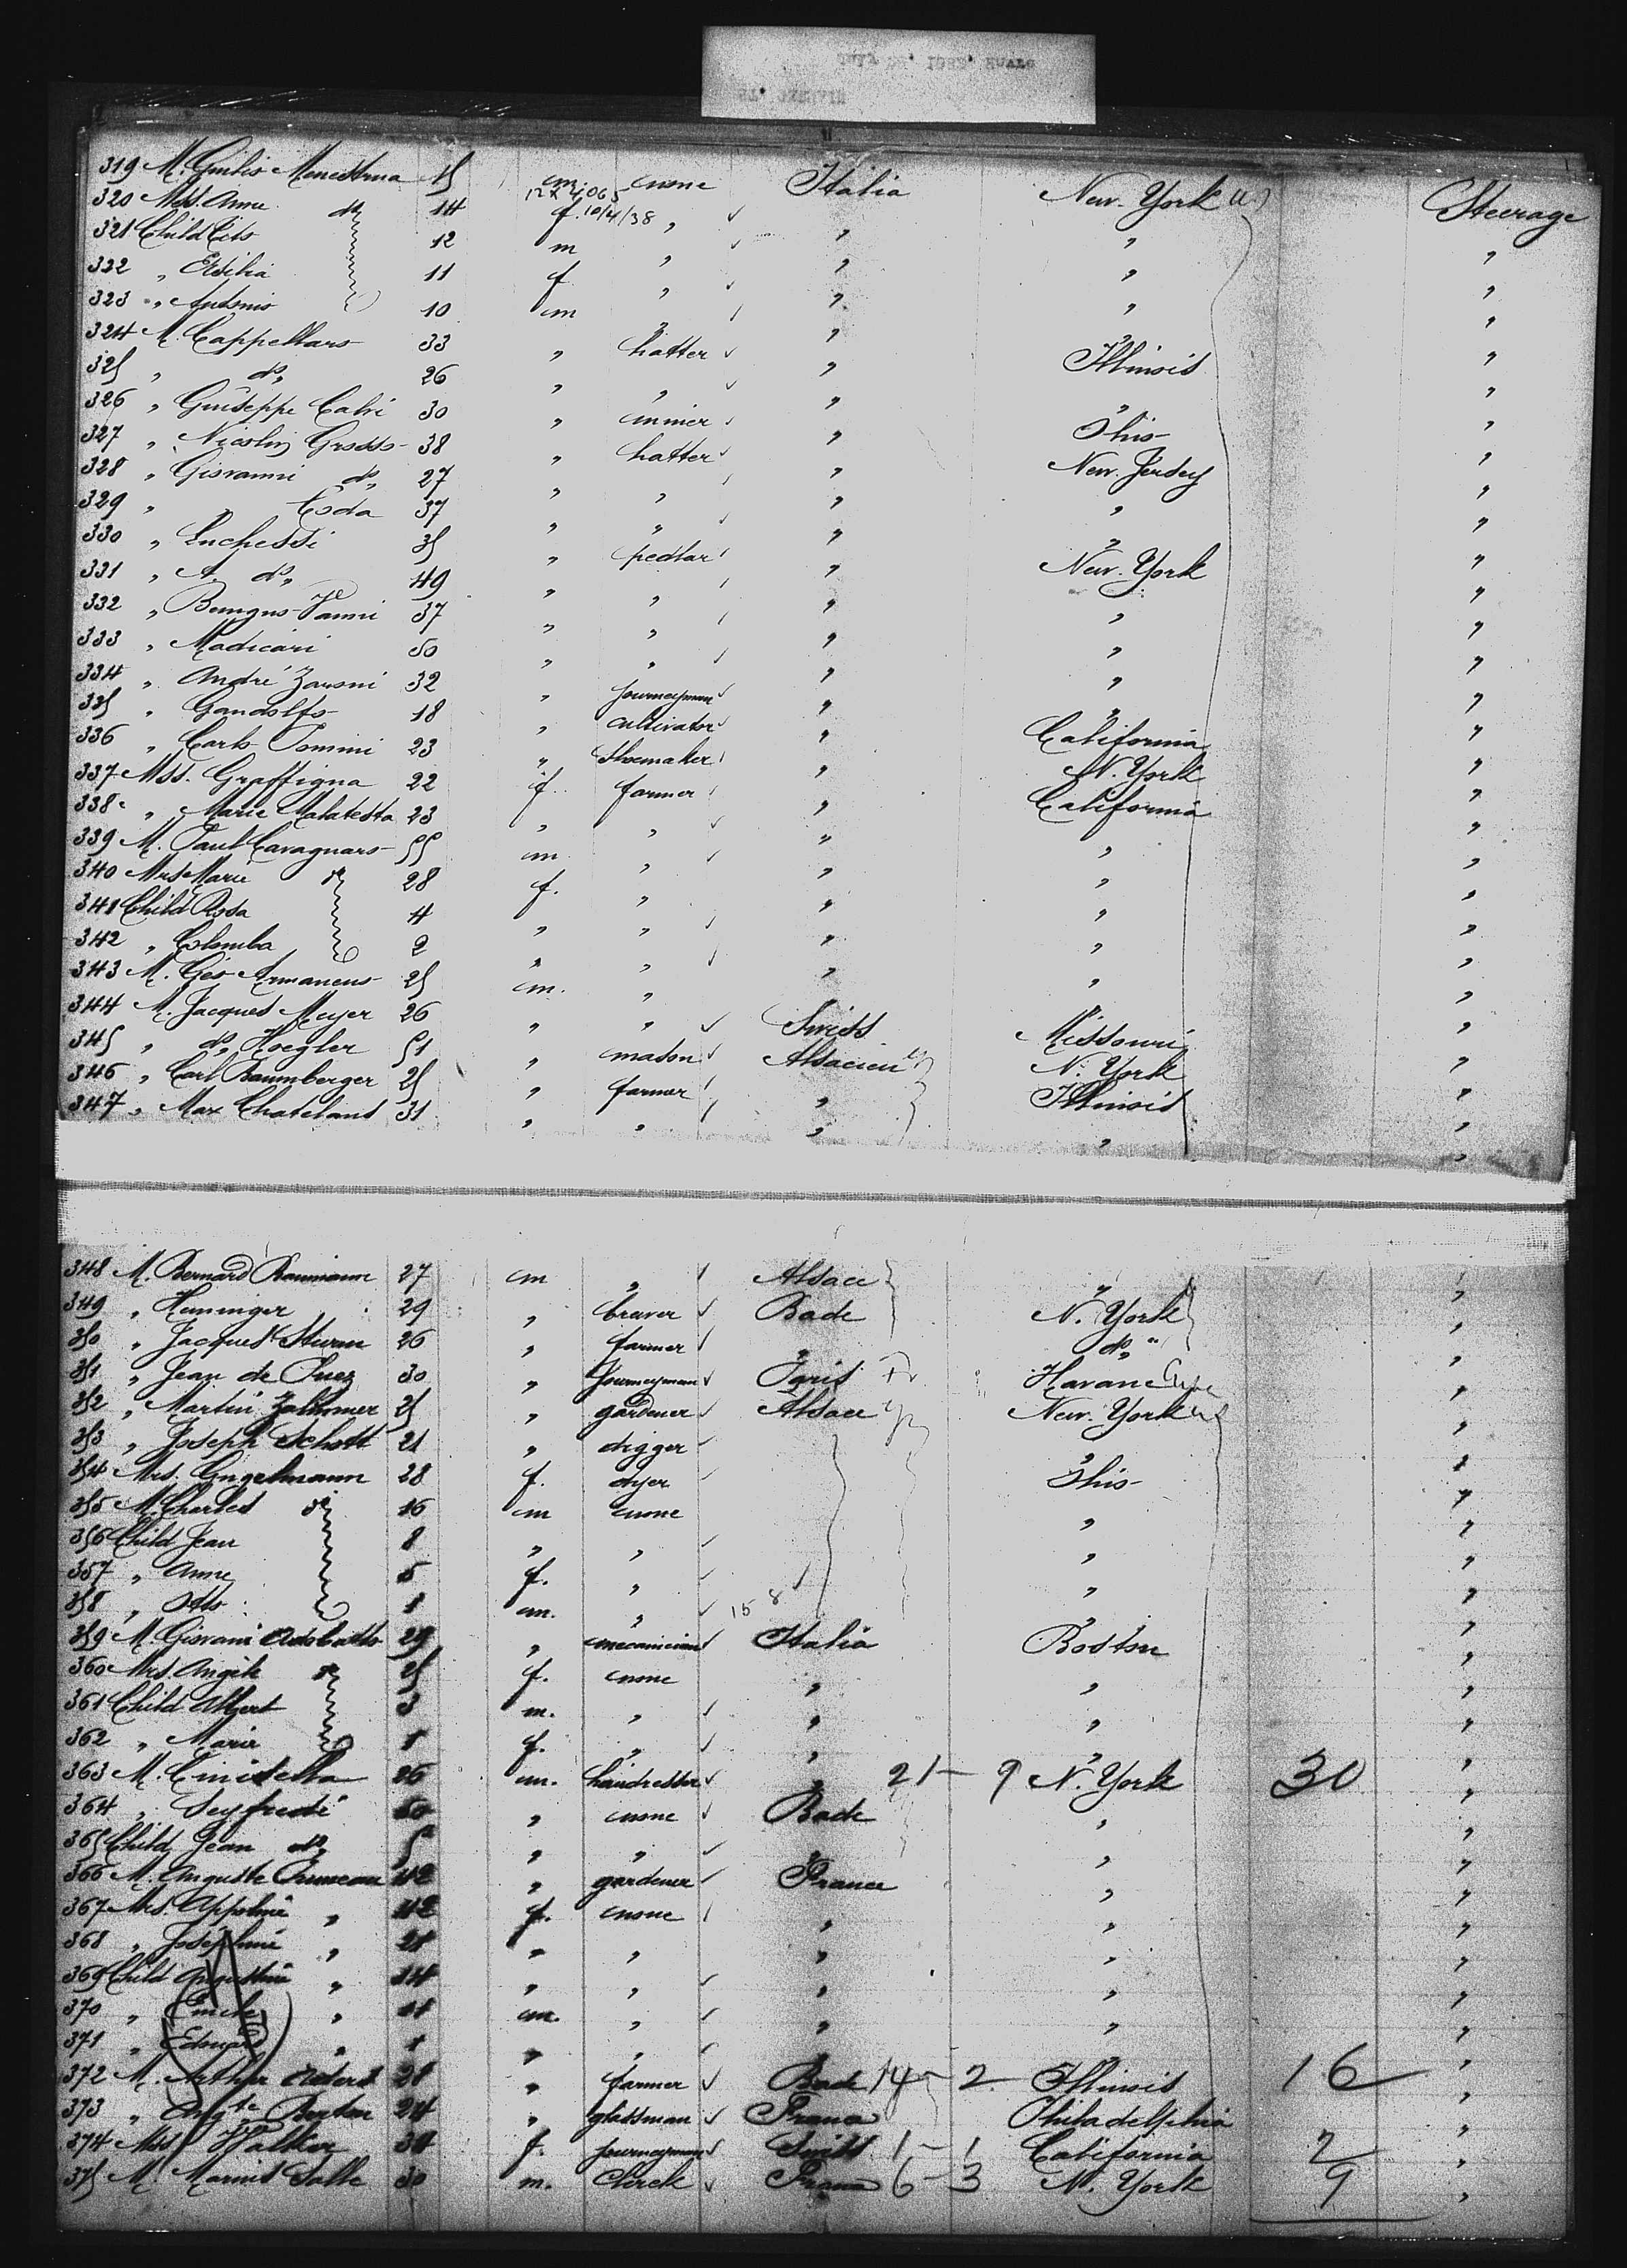 319 M. Giulio Menestrina 15 m. none Italia New-York Steerage
127 4065
320 Mss. Anna do 14 f. 10/4/38 " " " "
321 Child Tito 12 m " " " "
322 " Ersilia 11 f " " " "
323 " Antonio 10 m " " " "
324 M. Cappellaro 33 " hatter " Illinois "
325 " do 26 " " " " "
326 " Guiseppe Calvi 30 " minier " Ohio "
327 " Nicolin Grosso 38 " hatter " New. Jersey "
328 " Giovanni do 27 " " " " "
329 " " Coda 37 " " " " "
330 " Luchessi 35 " pedlar " New. York "
331 " A. do 49 " " " " "
332 " Vanni 37 " " " " "
333 " Madicari 50 " " " " "
334 " André Zaroni 32 " journeyman " " "
335 " Gandolfo 18 " cultivator " California "
336 " Carlo Tomini 23 " Shoemaker " N. York "
337 Mss. Graffigna 22 f. farmer " California "
338 " Marie Malatesta 23 " " " " "
339 M. Paul Cavagnaro 55 m " " " "
340 Mrs Marie do 28 f. " " " "
341 Child Rosa 4 " " " " "
342 " Colomba 2 " " " " "
343 M. Géo Armaneus 25 m. " " " "
344 M. Jacques Meyer 26 " " Swiss Missouri "
345 " do Hoegler 51 " mason Alsacien N. York "
346 " Carl Baumberger 25 " farmer " Illinois "
347 " Max Chateland 31 " " " " "
348 M. Bernard Baumann 27 m " Alsace " "
349 " Heninger 29 " braver Bade N. York "
350 " Jacques Sturm 26 " farmer " do "
351 " Jean de Suez 30 " Journeyman Paris Havane "
352 " Martin 25 " gardener Alsace New. York "
353 " Joseph Schott 21 " digger " "
354 Mrs. Engelmann 28 f. dyer Ohio "
355 M. Charles do 16 m none " "
356 Child Jean 8 " " " "
357 " Anne 5 f. " " "
358 " Otto 1 m. " 15 8 " "
359 M. Giovani 29 " mecanician Italia Boston "
360 Mrs. Angèle do 25 f. none " " "
361 Child Albert 3 m. " " " "
362 " Maria 1 f. " " " "
363 M. 26 m. hairdresser " 21 - 9 N. York 30 "
364 " Seyfredi 50 " none Bade " "
365 Child Jean do 5 " " " " "
366 M. Auguste 42 " gardener France " "
367 Mrs. Appoline " 42 f. none " " "
368 " Joséphine " 21 " " " " "
369 Child Augustine " 14 " " " " "
370 " Emile " 11 m. " " " "
371 " Edouard " 1 " " " " "
372 M. Arthur 28 " farmer Bade 14 - 2 Illinois 16 "
373 " Augte 24 " glassman France Philadelphia "
374 Mss Walker 34 f. journeyman Swiss 1 - 1 California 2 "
375 M. Marius Salle 30 m. Clerck France 6 - 3 N. York 9 "